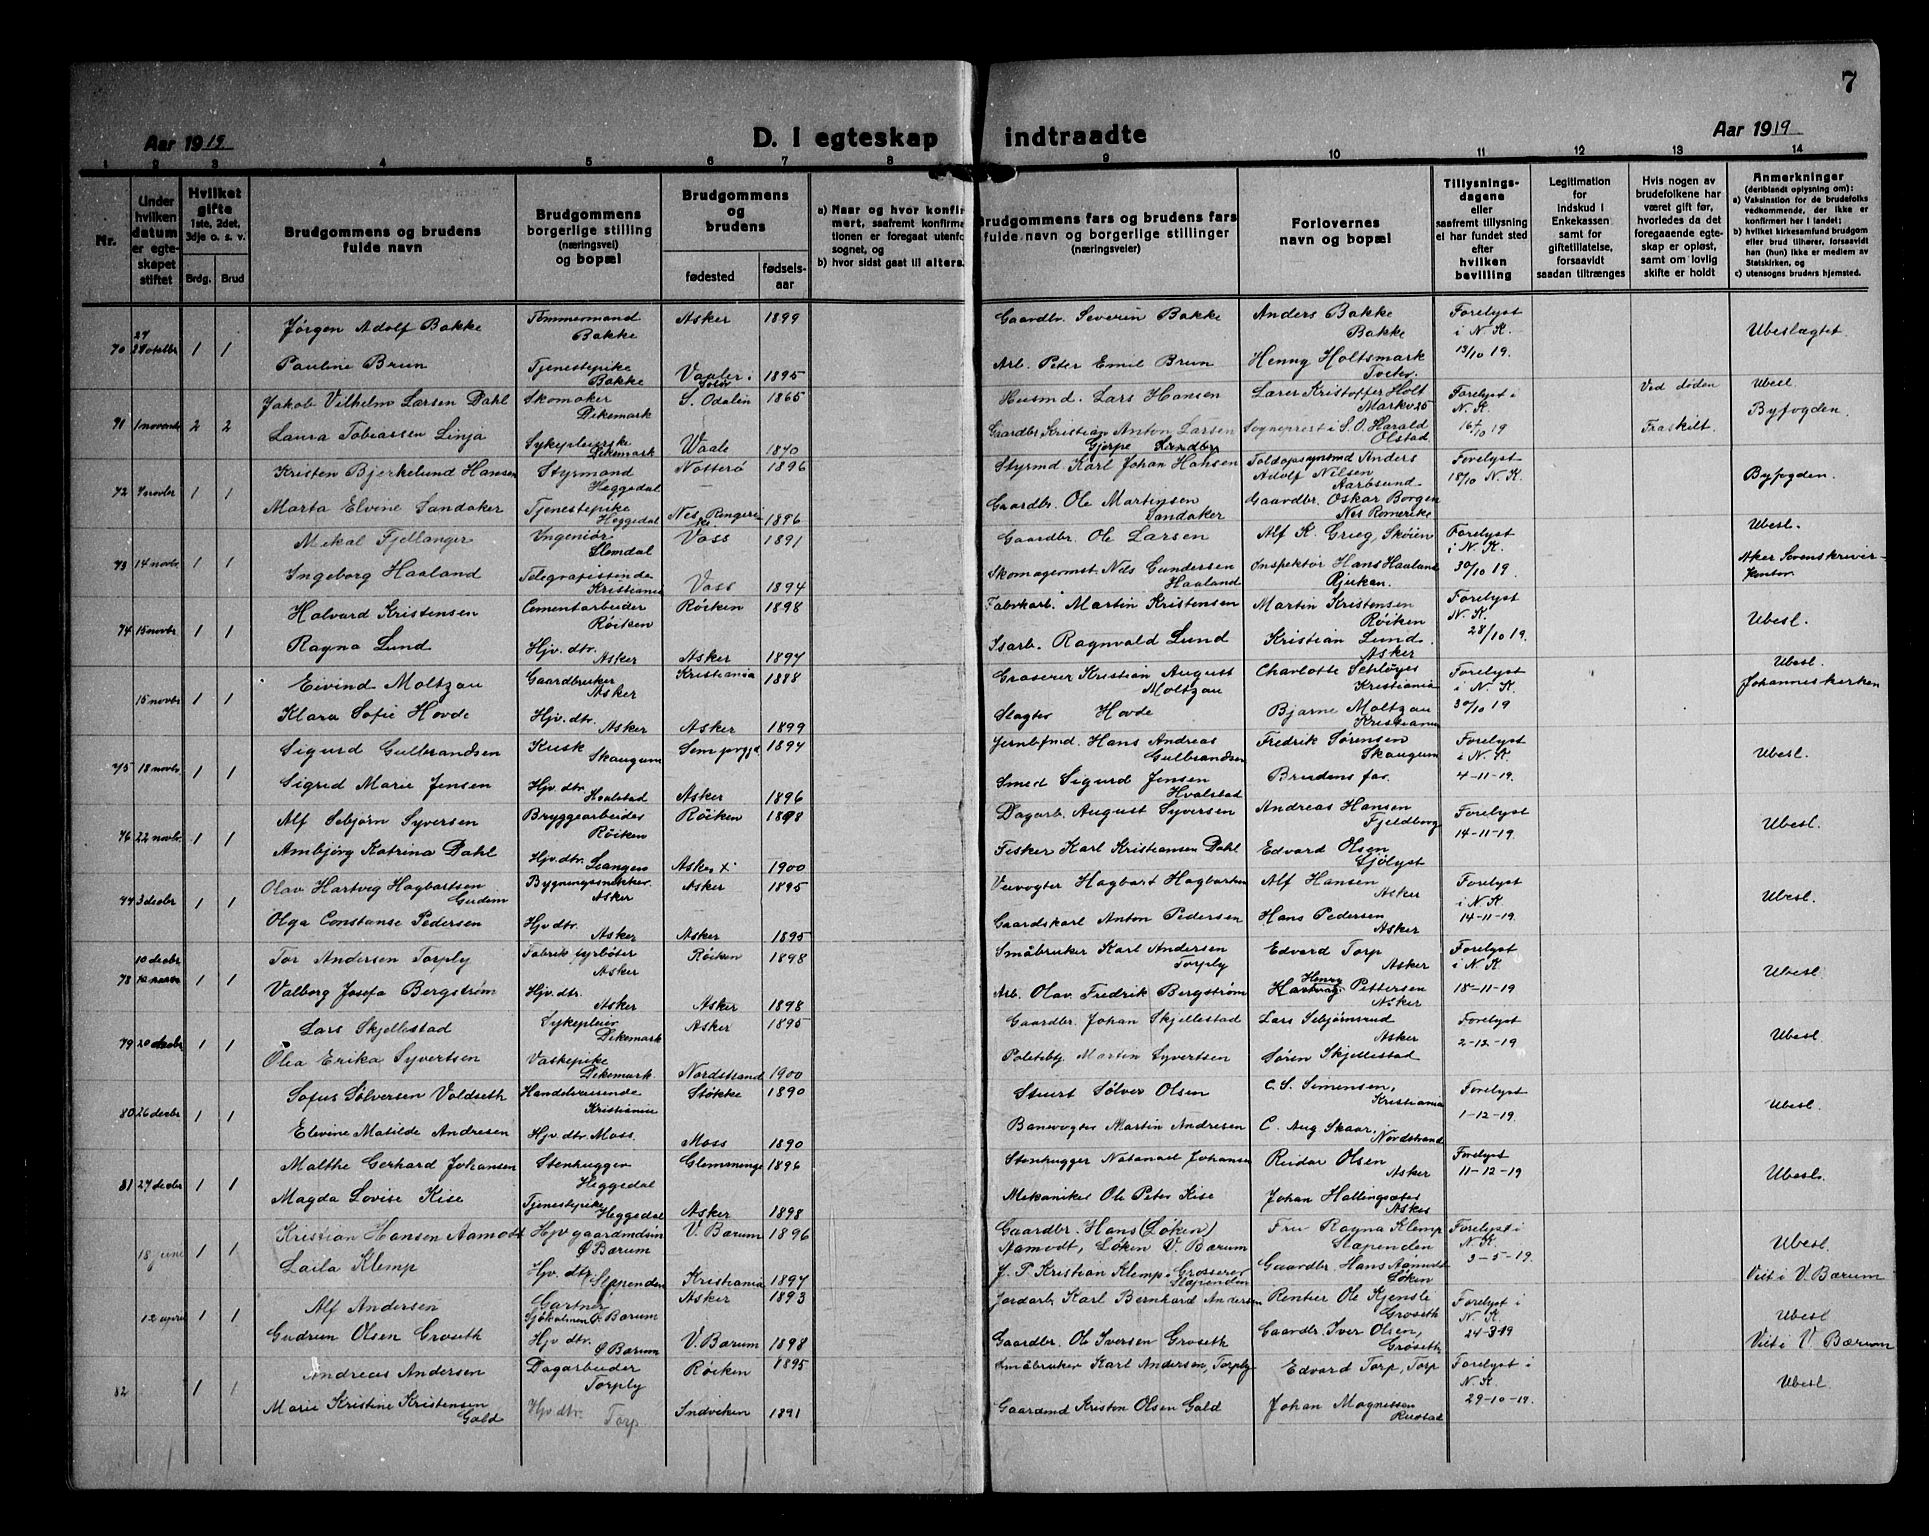 7
Aar 1919.
D. I egteskap indtraadte
Aar 1919
1 2 3 4 5 6 7 8 9 10 11 12 13 14
Nr.
Under hvilken datum er egteskapet stiftet
Hvilket gifte 1ste, 2det, 3dje o. s. v.
Brdg. Brud
Brudgommens og brudens fulde navn
Brudgommens borgerlige stilling (næringsvei) og bopæl
Brudgommens og brudens
fødested fødselsaar
a) Naar og hvor konfirmert, saafremt konfirmationen er foregaat utenfor sognet, og
b) hvor sidst gaat til alters.
Brudgommens fars og brudens fars fulde navn og borgerlige stillinger (næringsveier)
Forlovernes navn og bopæl
Tillysningsdagene eller saafremt tillysning ei har fundet sted efter hvilken bevilling
Legitimation for indskud i Enkekassen samt for giftetillatelse, forsaavidt saadan tiltrænges
Hvis nogen av brudefolkene har været gift før, hvorledes da det foregaaende egteskap er opløst, samt om lovlig skifte er holdt
Anmerkninger (deriblandt oplysning om):
a) Vaksination for de brudefolks vedkommende, der ikke er konfirmert her i landet;
b) hvilket kirkesamfund brudgom eller brud tilhører, forsaavidt han (hun) ikke er medlem av Statskirken, og
c) utensogns bruders hjemsted.
70 1 1 Jørgen Adolf Bakke Tømmermand Bakke Asker 1899 Gaardbr. Severin Bakke Anders Bakke Bakke Forelyst i N. K. 13/10 19. Ubeslægtet
Pauline Brun Tjenestepike Bakke Vaaler i Solør 1895 Arb. Peter Emil Brun Henny Holtsmark Tveter
71 1 novembr 2 2 Jakob Vilhelm Larsen Dahl Skomaker Dikemark S. Odalen 1865 Husmd. Lars Hansen Lærer Kristoffer Holt Markv 25 Forelyst i N. K. 16/10 19 Ved døden Ubesl.
Laura Tobiassen Linja Sykepleierske Dikemark Waale 1870 Gaardbr Kristian Anton Larsen Gjerpe Sogneprest i S. O. Harald Olstad Fraskilt. Byfogden
72 4 novbr 1 1 Kristen Bjerkelund Hansen Styrmand Heggedal Nøtterø 1896 Styrmd. Karl Johan Hansen Toldopsynsmd Anders Adolf Nilsen Aarøsund Forelyst 18/10 N. K. Byfogden.
Marta Elvine Sandaker Tjenestepike Heggedal 1896 Gaardbr. Ole Martinsen Sandaker Gaardbr. Oskar Borgen Nes Romerike
73 14 novbr 1 1 Mikal Fjellanger Ingeniør Slemdal Voss 1891 Gaardbr. Ole Larsen Alf K. Grieg, Skøien Forelyst i N. K. 30/10 19. Ubesl.
Ingeborg Haaland Telegrafistende Kristiania Voss 1894 Skomagermst. Nils Gundersen Haaland Inspektør Hans Haaland Rjukan. Aker Sorenskriver-kontor
74 15 novbr 1 1 Halvard Kristensen Cementarbeider Røiken Røiken 1898 Fabrkarb. Martin Kristensen Martin Kristensen Røiken Forelyst N. K. 28/10 19. Ubesl.
Ragna Lund Hjv. dtr. Asker Asker 1897 Isarb. Ragnvald Lund Kristian Lund. Asker
15 novbr 1 1 Eivind Moltzau Gaardbruker Asker Kristiania 1888 Groserer Kristian August Moltzau Charlotte Schløyes Kristiania Forelyst i N. K. 30/10 19 Ubesl. Johanneskerken
Klara Sofie Hovde Hjv. dtr. Asker Asker 1899 Slagter Hovde Bjarne Moltzau Kristiania
75 18 novbr 1 1 Sigurd Gulbrandsen Kusk Skaugum Sem prgjd. 1894 Jernbfmd. Hans Andreas Gulbrandsen Fredrik Sørensen Skaugum Forelyst i N. K. 4-11-19. Ubesl.
Sigrid Marie Jensen Hjv. dtr. Hvalstad Asker 1896 Smed Sigurd Jensen Hvalstad Brudens far.
76 22 novbr 1 1 Alf Sebjørn Syversen Bryggearbeider Røiken Røiken 1898 Dagarb. August Syversen Andreas Hansen Fjeldborg Forelyst 14-11-19. Ubesl.
Ambjørg Katrina Dahl Hjv. dtr. Leangen Asker 1900 Fisker Karl Kristiansen Dahl Edvard Olsen Sjølyst
77 3 decbr 1 1 Olav Hartvig Hagbartsen Gudem Bygningssnekker Asker Asker 1895 Veivogter Hagbart Hagbartsen Alf Hansen Asker Forelyst i N. K. 14-11-19. Ubesl.
Olga Constanse Pedersen Hjv dtr. Asker Asker 1895 Gaardskarl Anton Pedersen Hans Pedersen Asker
78 10 decbr 1 1 Tor Andersen Torply Fabrik fyrbøter Asker Røiken 1898 Småbruker Karl Andersen Torply Edvard Torp Asker Forelyst i N. K. 18-11-19 Ubesl.
Valborg Josefa Bergstrøm Hjv. dtr. Asker Asker 1898 Arb. Olav Fredrik Bergstrøm Henry Pettersen Asker
79 20 decbr 1 1 Lars Skjellestad Sykepleier Dikemark Asker 1895 Gaardbr. Johan Skjellestad Lars Sebjørnsrud Asker Forelyst 2-12-19 Ubesl.
Olea Erika Syvertsen Vaskepike Dikemark. Nordstrand 1900 Politibtj Martin Syvertsen Søren Skjellestad
80 26 decbr 1 1 Sofus Sølversen Voldseth Handelsreisende Kristiania Stokke 1890 Stuert Sølver Olsen C. S. Simensen, Kristiania Forelyst 1-12-19. Ubesl.
Elevine Matilde Andresen Hjv. dtr. Moss. Moss 1890 Banevogter Martin Andresen C. Aug Skaar, Nordstrand
81 27 decbr 1 1 Malthe Gerhard Johansen Stenhugger Heggedal Glemminge 1896 Stenhugger Natanael Johansen Reidar Olsen Asker Forelyst 11-12-19 Ubesl.
Magda Lovise Kise Tjenestepike Heggedal Asker 1898 Mekaniker Ole Peter Kise Johan Hallingsæter Asker
18 june 1 1 Kristian Hansen Aamodt Hjv gaardmdsøn Ø Bærum V. Bærum 1896 Gaardbr. Hans (Løken) Aamodt, Løken V. Bærum Fru Ragna Klemp Slæpenden Forelyst i N. K. 3-5-19. Ubesl.
Laila Klemp Hjv. dtr. Slependen Kristiania 1897 J. P. Kristian Klemp, Grosserer Slæpenden Gaardbr. Hans Aamodt Løken Viet i V. Bærum
12 april 1 1 Alf Andersen Gartner Sjøholmen Ø. Bærum Asker 1893 Jordarb. Karl Bernhard Andersen Rentier Ole Kjensli Groseth Forelyst i N. K. 24-3-19 Ubesl
Gudrun Olsen Groseth Hjv dtr. Ø Bærum V. Bærum 1898 Gaardbr. Ole Iversen Groseth Gaardbr. Iver Olsen, Groseth Viet i V. Bærum
82 1 1 Andreas Andersen Dagarbeider Torply Røiken 1895 Småbruker Karl Andersen, Torply Edvard Torp, Torp Forelyst i N. K. 29-10-19. Ubesl.
Marie Kristine Kristensen Gald Hjv dtr. Torp. Indviken 1891 Gaardmd Kristen Olsen Gald Johan Magnessen Rustad